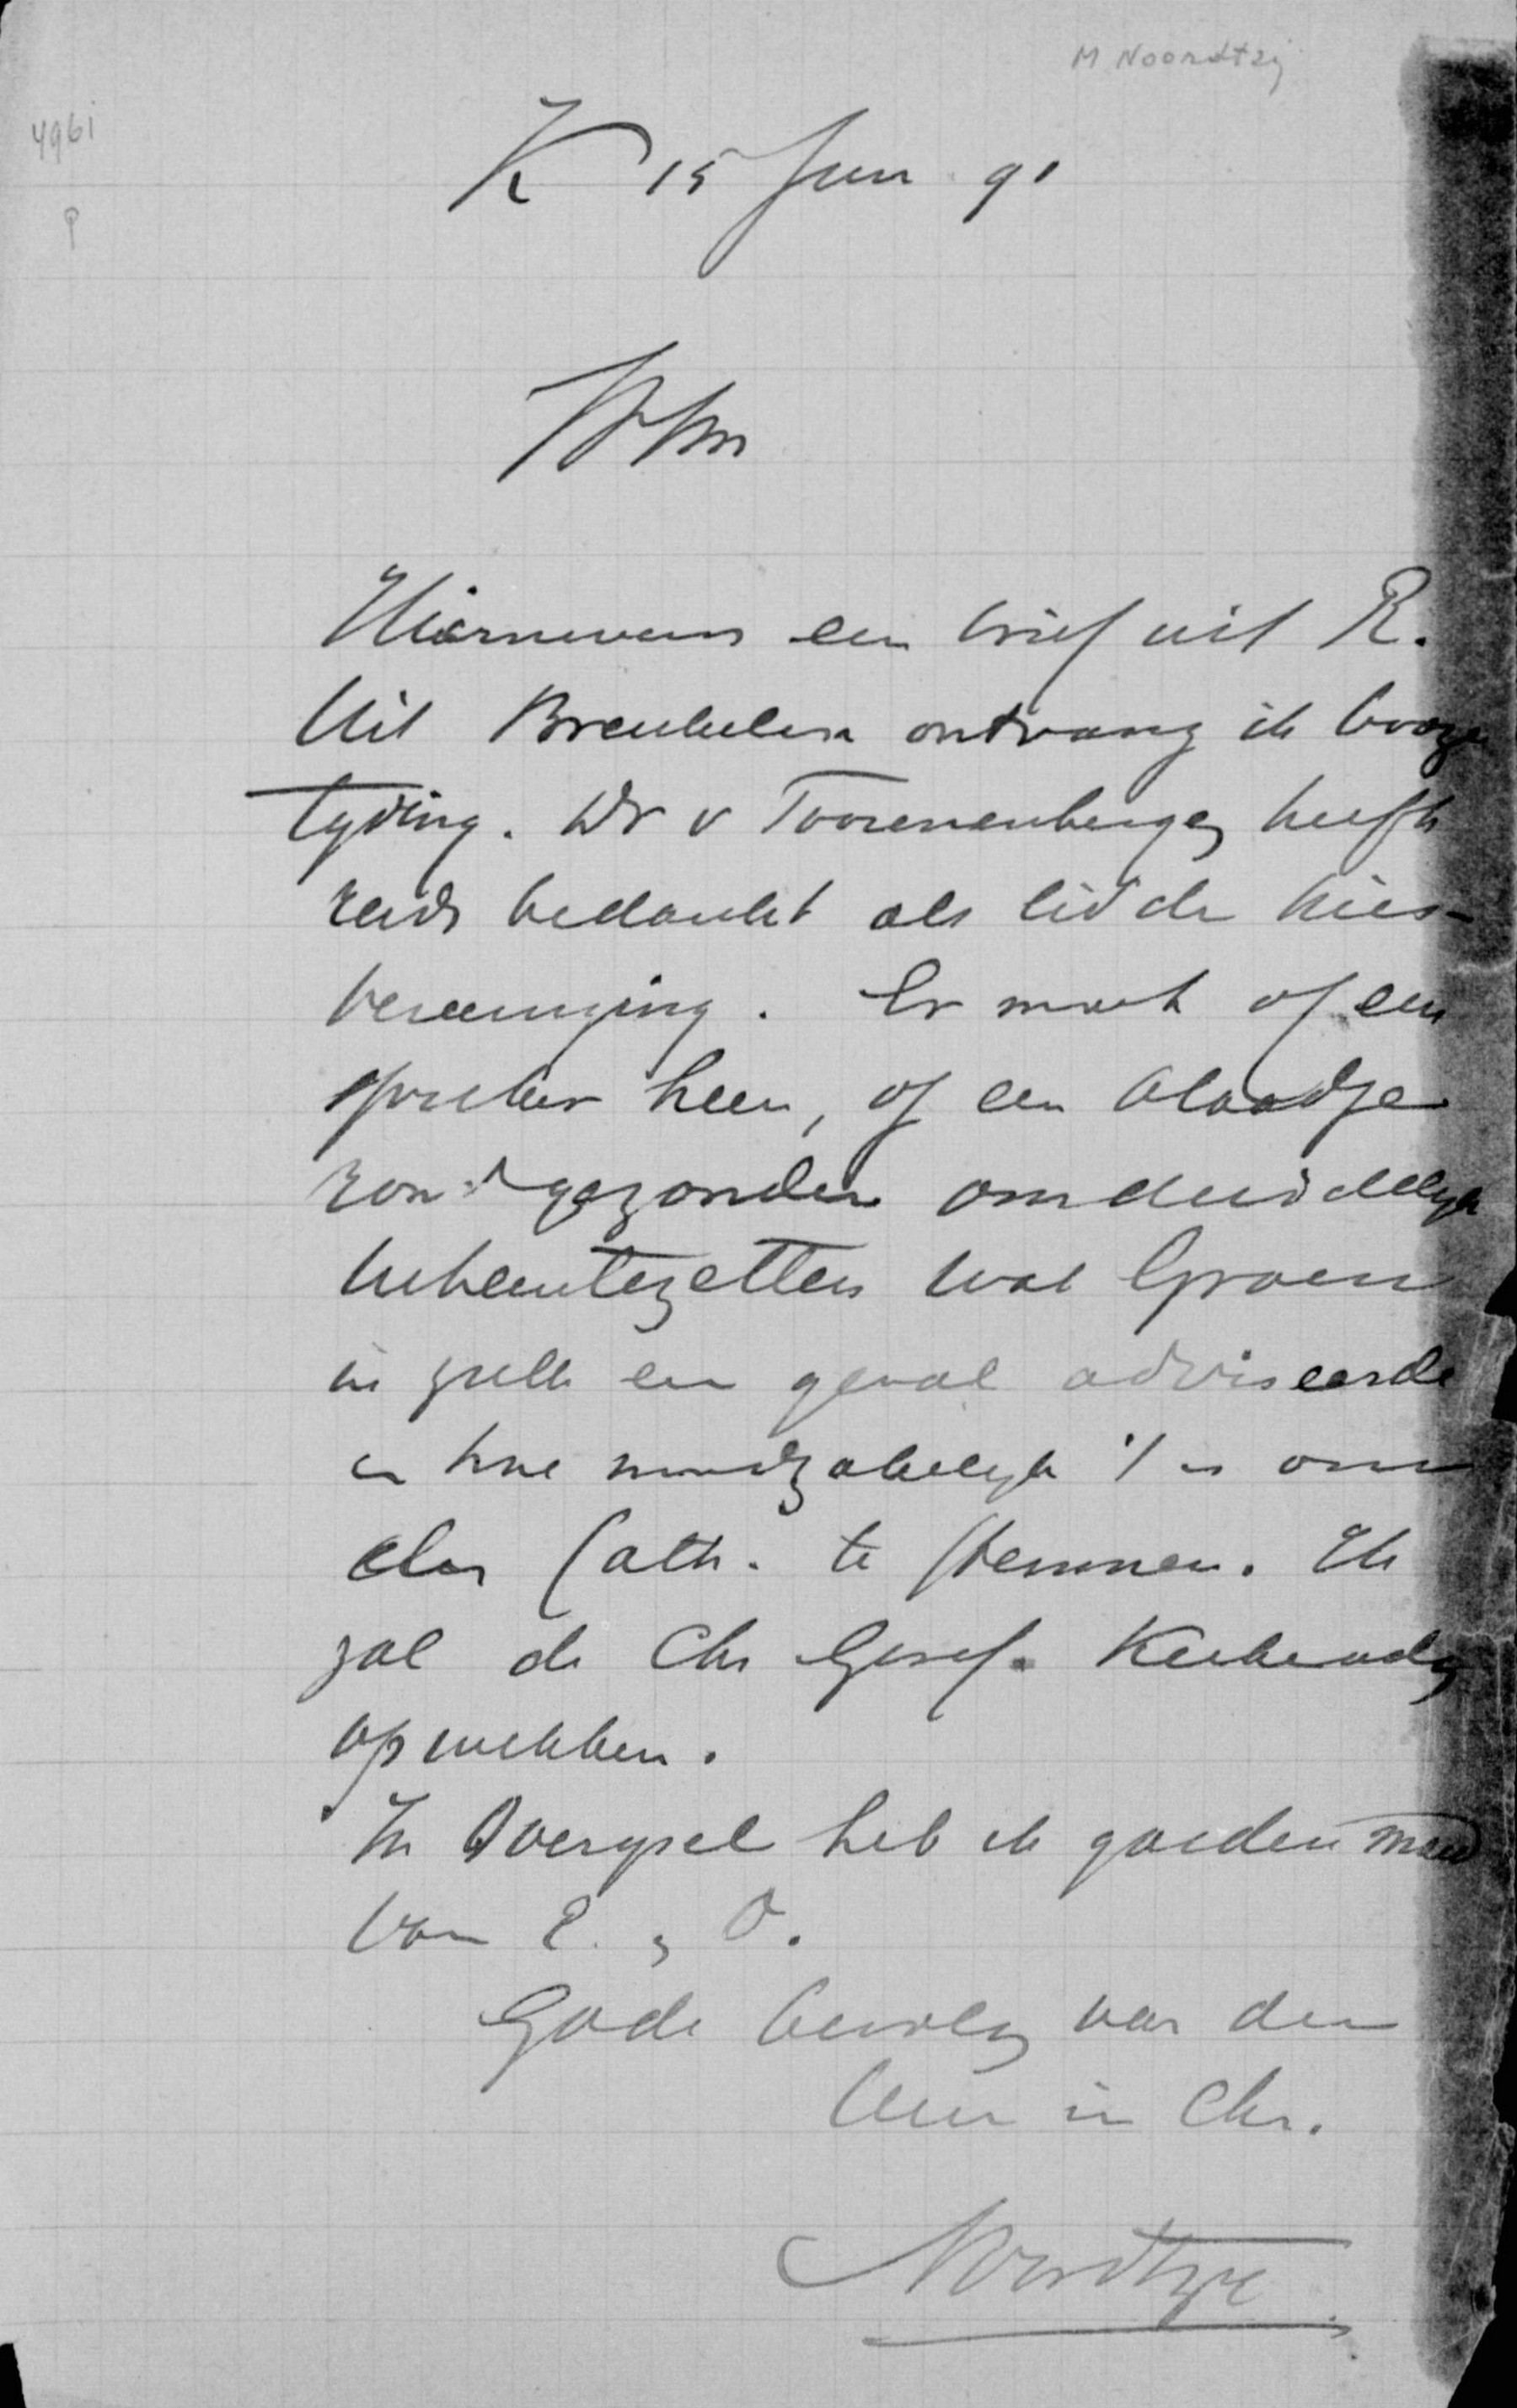 M Noordtzij
4961
K 15 Jun 91
Hiernevens een brief uit R.
Uit Breukelen ontvang ik booze
tyding. Dr v Toorenenbergen heeft
reeds bedankt als lid der kies-
vereeniging. Er moet of een
spreker heen, of een blaadje
rondgezonden om duidelyk
uiteentezetten wat Groen
in zulk een geval adviseerde
en hoe noodzakelyk 't is om
den Cath. te stemmen. Ik
zal de Chr Geref. Kerkeraden
opwekken.
In Overysel heb ik goeden moed
van E. O.
Gode bevolen van den
Uwen in Chr.
Noordtzij